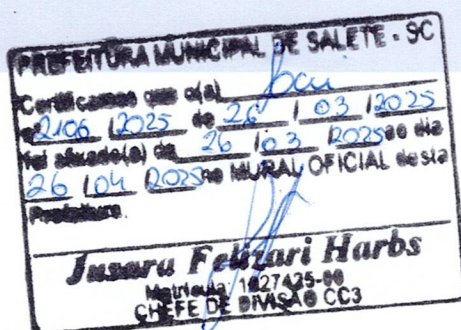 PREFEITURA MUNICIPAL DE SALETE - SC
Certificamos que o(a)
nº 2106 / 2025 de 26 / 03 / 2025
foi afixado(a) de 26 / 03 / 2025 ao dia
26 / 04 / 2025 no MURAL OFICIAL desta
Prefeitura.
Jusara Felizari Harbs
Matrícula: 1827435-00
CHEFE DE DIVISÃO CC3